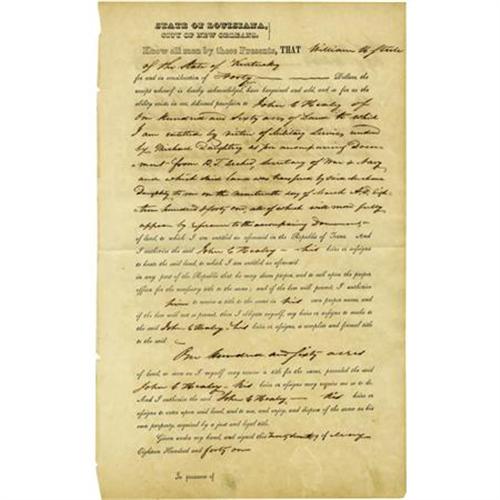 STATE OF LOUISIANA,
CITY OF NEW ORLEANS.
Know all men by these Presents, THAT William H Steele
of the State of Kentucky
for and in consideration of Forty Dollars, the
receipt whereof is hereby acknowledged, have bargained and sold, and so far as the
ability exists in me, delivered possession to John C Healey of
One hundred and Sixty acres of Land to which
I am entitled by virtue of Military Services render
by Michael Daughtry as per accompanying Docu-
ment from Secretary of War & Navy
and which said Land was transferred by said
Daughtry to me on the nineteenth day of March A.D. Eigh-
teen hundred & forty one, all of which will more fully
appear by reference to the accompanying Document
of land, to which I am entitled as aforesaid in the Republic of Texas. And
I authorize the said John C Healey his heirs or assigns
to locate the said land, to which I am entitled as aforesaid
in any part of the Republic that he may deem proper, and to call upon the proper
office for the necessary title to the same; and if the law will permit, I authorize
him to receive a title to the same in his own proper name, and
if the law will not so permit, then I obligate myself, my heirs or assigns to make to
the said John C Healey his heirs or assigns, a complete and formal title
to the said
One hundred and sixty acres
of land, so soon as I myself may receive a title for the same, provided the said
John C Healey his heirs or assigns may require me so to do.
And I authorize the said John C Healey his heirs or
assigns to enter upon said land, and to use, and enjoy, and dispose of the same as his
own property, acquired by a just and legal title.
Given under my hand, and signed this day of
Eighteen Hundred and forty one
In presence of